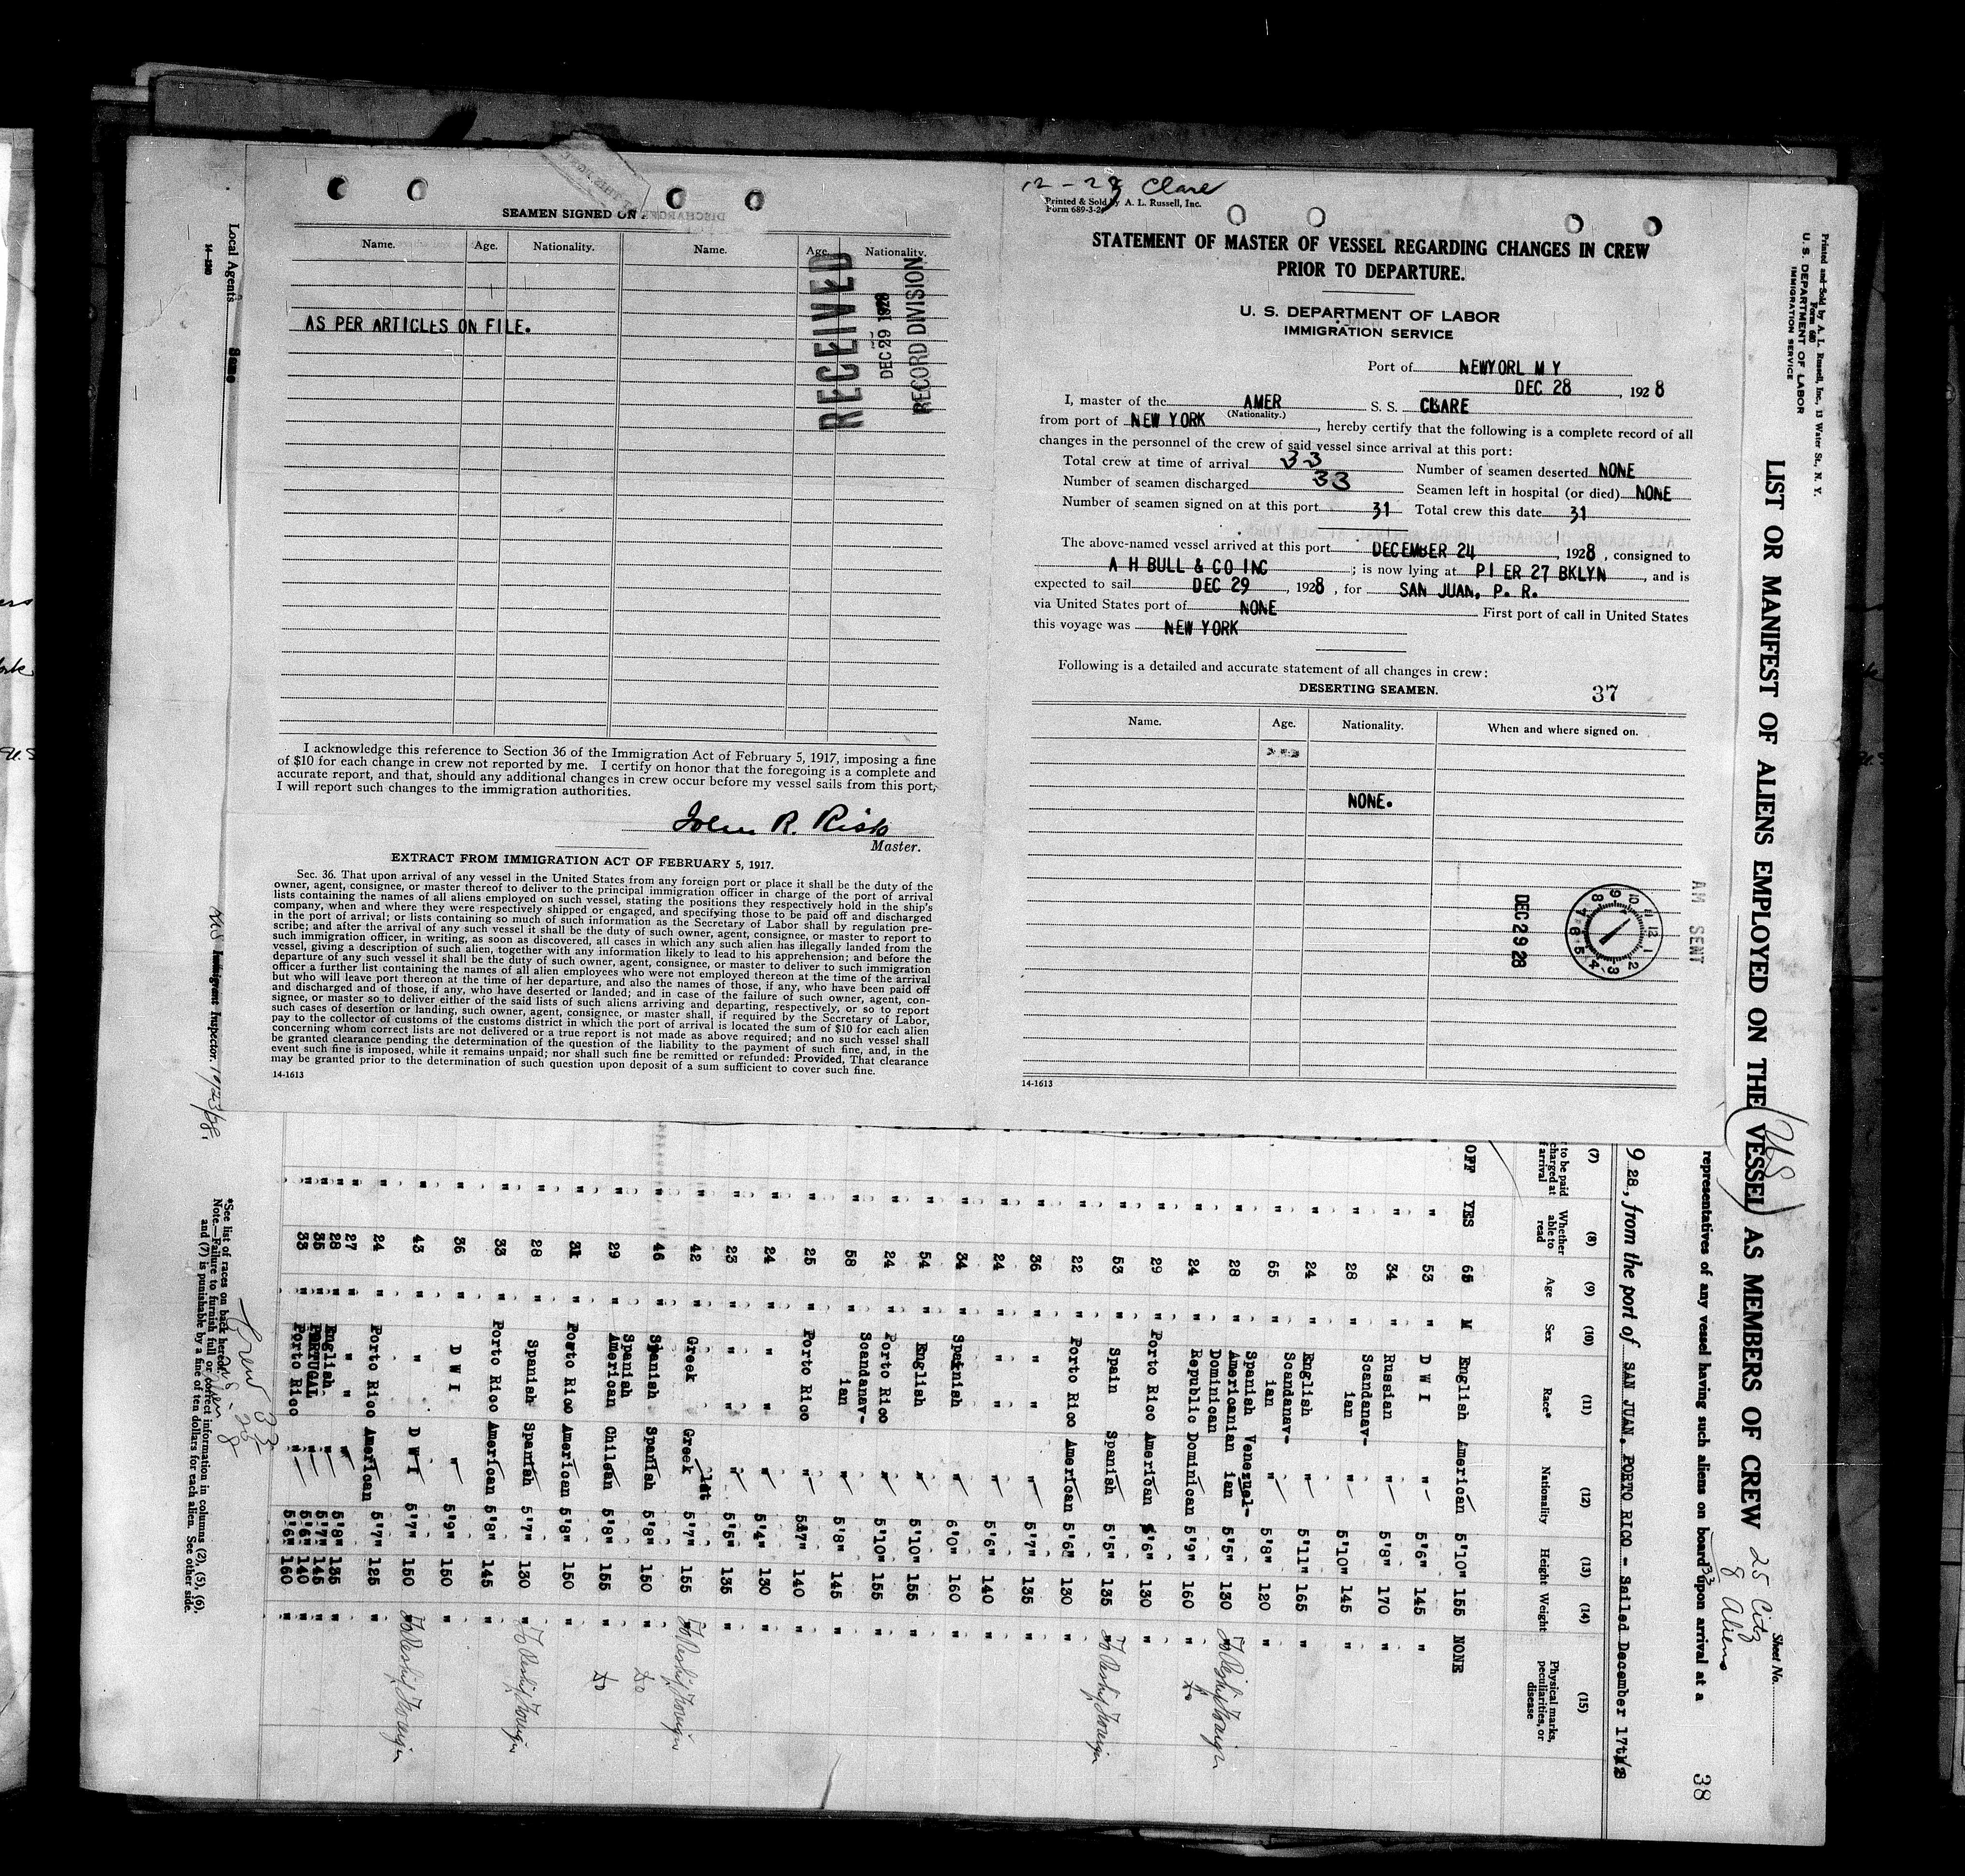 SEAMEN SIGNED ON
Name. Age. Nationality. Name. Age. Nationality.
AS PER ARTICLES ON FILE.
RECEIVED
DEC 29 1928
RECORD DIVISION
I acknowledge this reference to Section 36 of the Immigration Act of February 5, 1917, imposing a fine
of $10 for each change in crew not reported by me. I certify on honor that the foregoing is a complete and
accurate report, and that, should any additional changes in crew occur before my vessel sails from this port,
I will report such changes to the immigration authorities.
John R. Risk
Master.
EXTRACT FROM IMMIGRATION ACT OF FEBRUARY 5, 1917.
Sec. 36. That upon arrival of any vessel in the United States from any foreign port or place it shall be the duty of the
owner, agent, consignee, or master thereof to deliver to the principal immigration officer in charge of the port of arrival
lists containing the names of all aliens employed on such vessel, stating the positions they respectively hold in the ship's
company, when and where they were respectively shipped or engaged, and specifying those to be paid off and discharged
in the port of arrival; or lists containing so much of such information as the Secretary of Labor shall by regulation pre-
scribe; and after the arrival of any such vessel it shall be the duty of such owner, agent, consignee, or master to report to
such immigration officer, in writing, as soon as discovered, all cases in which any such alien has illegally landed from the
vessel, giving a description of such alien, together with any information likely to lead to his apprehension; and before the
departure of any such vessel it shall be the duty of such owner, agent, consignee, or master to deliver to such immigration
officer a further list containing the names of all alien employees who were not employed thereon at the time of the arrival
but who will leave port thereon at the time of her departure, and also the names of those, if any, who have been paid off
and discharged and of those, if any, who have deserted or landed; and in case of the failure of such owner, agent, con-
signee, or master so to deliver either of the said lists of such aliens arriving and departing, respectively, or so to report
such cases of desertion or landing, such owner, agent, consignee, or master shall, if required by the Secretary of Labor,
pay to the collector of customs of the customs district in which the port of arrival is located the sum of $10 for each alien
concerning whom correct lists are not delivered or a true report is not made as above required; and no such vessel shall
be granted clearance pending the determination of the question of the liability to the payment of such fine, and, in the
event such fine is imposed, while it remains unpaid; nor shall such fine be remitted or refunded: Provided, That clearance
may be granted prior to the determination of such question upon deposit of a sum sufficient to cover such fine.
14-1613
12-28 Clare
Printed & Sold by A. L. Russell, Inc.
Form 689-3-2
STATEMENT OF MASTER OF VESSEL REGARDING CHANGES IN CREW
PRIOR TO DEPARTURE.
U. S. DEPARTMENT OF LABOR
IMMIGRATION SERVICE
Port of NEWYORL M Y
DEC 28, 1928
I, master of the AMER S. S. CLARE
(Nationality.)
from port of NEW YORK, hereby certify that the following is a complete record of all
changes in the personnel of the crew of said vessel since arrival at this port:
Total crew at time of arrival 33 Number of seamen deserted NONE
Number of seamen discharged 33 Seamen left in hospital (or died) NONE
Number of seamen signed on at this port 31 Total crew this date 31
The above-named vessel arrived at this port DECEMBER 24, 1928, consigned to
A H BULL & CO INC; is now lying at PIER 27 BKLYN, and is
expected to sail DEC 29, 1928, for SAN JUAN, P. R.
via United States port of NONE First port of call in United States
this voyage was NEW YORK
Following is a detailed and accurate statement of all changes in crew:
DESERTING SEAMEN. 37
Name. Age. Nationality. When and where signed on.
NONE.
AM SENT
DEC 29 28
14-1613
Printed and Sold by A. L. Russell, Inc., 13 Water St., N. Y.
Form 680
U. S. DEPARTMENT OF LABOR
IMMIGRATION SERVICE
LIST OR MANIFEST OF ALIENS EMPLOYED ON THE VESSEL AS MEMBERS OF CREW
US
25 Citz
8 Aliens
33
Sheet No.
38
representatives of any vessel having such aliens on board upon arrival at a
9 28, from the port of SAN JUAN, PORTO RICO - Sailed December 17th
(7) (8) (9) (10) (11) (12) (13) (14) (15)
to be paid charged at arrival Whether able to read Age Sex Race* Nationality Height Weight Physical marks, peculiarities, or disease
OFF YES 65 M English American 5'10" 155 NONE
" " 53 " D W I " 5'6" 145 "
" " 34 " Russian " 5'8" 170 "
" " 28 " Scandanav-ian " 5'10" 145 "
" " 24 " English " 5'11" 165 "
" " 65 " Scandanav-ian " 5'8" 120 "
" " 28 " Spanish Americanian Venezuel-ian 5'5" 130 " To Reship Foreign
" " 24 " Dominican Republic Dominican 5'9" 160 " Do
" " 29 " Porto Rico American 5'6" 130 "
" " 53 " Spain Spanish 5'5" 135 " To Reship Foreign
" " 22 " Porto Rico American 5'6" 130 "
" " 36 " " " 5'7" 135 "
" " 24 " " " 5'6" 140 "
" " 34 " Spainish " 6'0" 160 "
" " 54 " English " 5'10" 155 "
" " 24 " Porto Rico " 5'10" 155 "
" " 58 " Scandanav-ian " 5'8" 145 "
" " 25 " Porto Rico " 5'7" 140 "
" " 24 " " " 5'4" 130 "
" " 23 " " " 5'5" 135 "
" " 42 " Greek Greek 1st 5'7" 155 " To Reship Foreign
" " 46 " Spanish Spanish 5'8" 150 " Do
" " 29 " Spanish American Chilean 5'8" 155 " Do
" " 31 " Porto Rico American 5'8" 150 "
" " 28 " Spanish Spanish 5'7" 130 " To Reship Foreign
" " 33 " Porto Rico American 5'8" 145 "
" " 36 " D W I " 5'9" 150 "
" " 43 " " D W I 5'7" 150 " To Reship Foreign
" " 24 " Porto Rico American 5'7" 125 "
" " 27 " " "
" " 28 " English " 5'8" 135 "
" " 35 " PORTUGAL " 5'7" 145 "
" " 33 " Porto Rico " 5'6" 140 "
5'6" 160 "
Crew 33
*See list of races on back hereof.
Note.—Failure to furnish full or correct information in columns (2), (5), (6),
and (7) is punishable by a fine of ten dollars for each alien. See other side.
Local Agents Same
14-120
Immigrant Inspector.